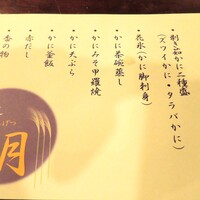 ・刺し茹かに二種盛
(ズワイかに・タラバかに)
・花氷(かに脚刺身)
・かに茶碗蒸し
・かにみそ甲羅焼
・かに天ぷら
・かに釜飯
・赤だし
・香の物
月